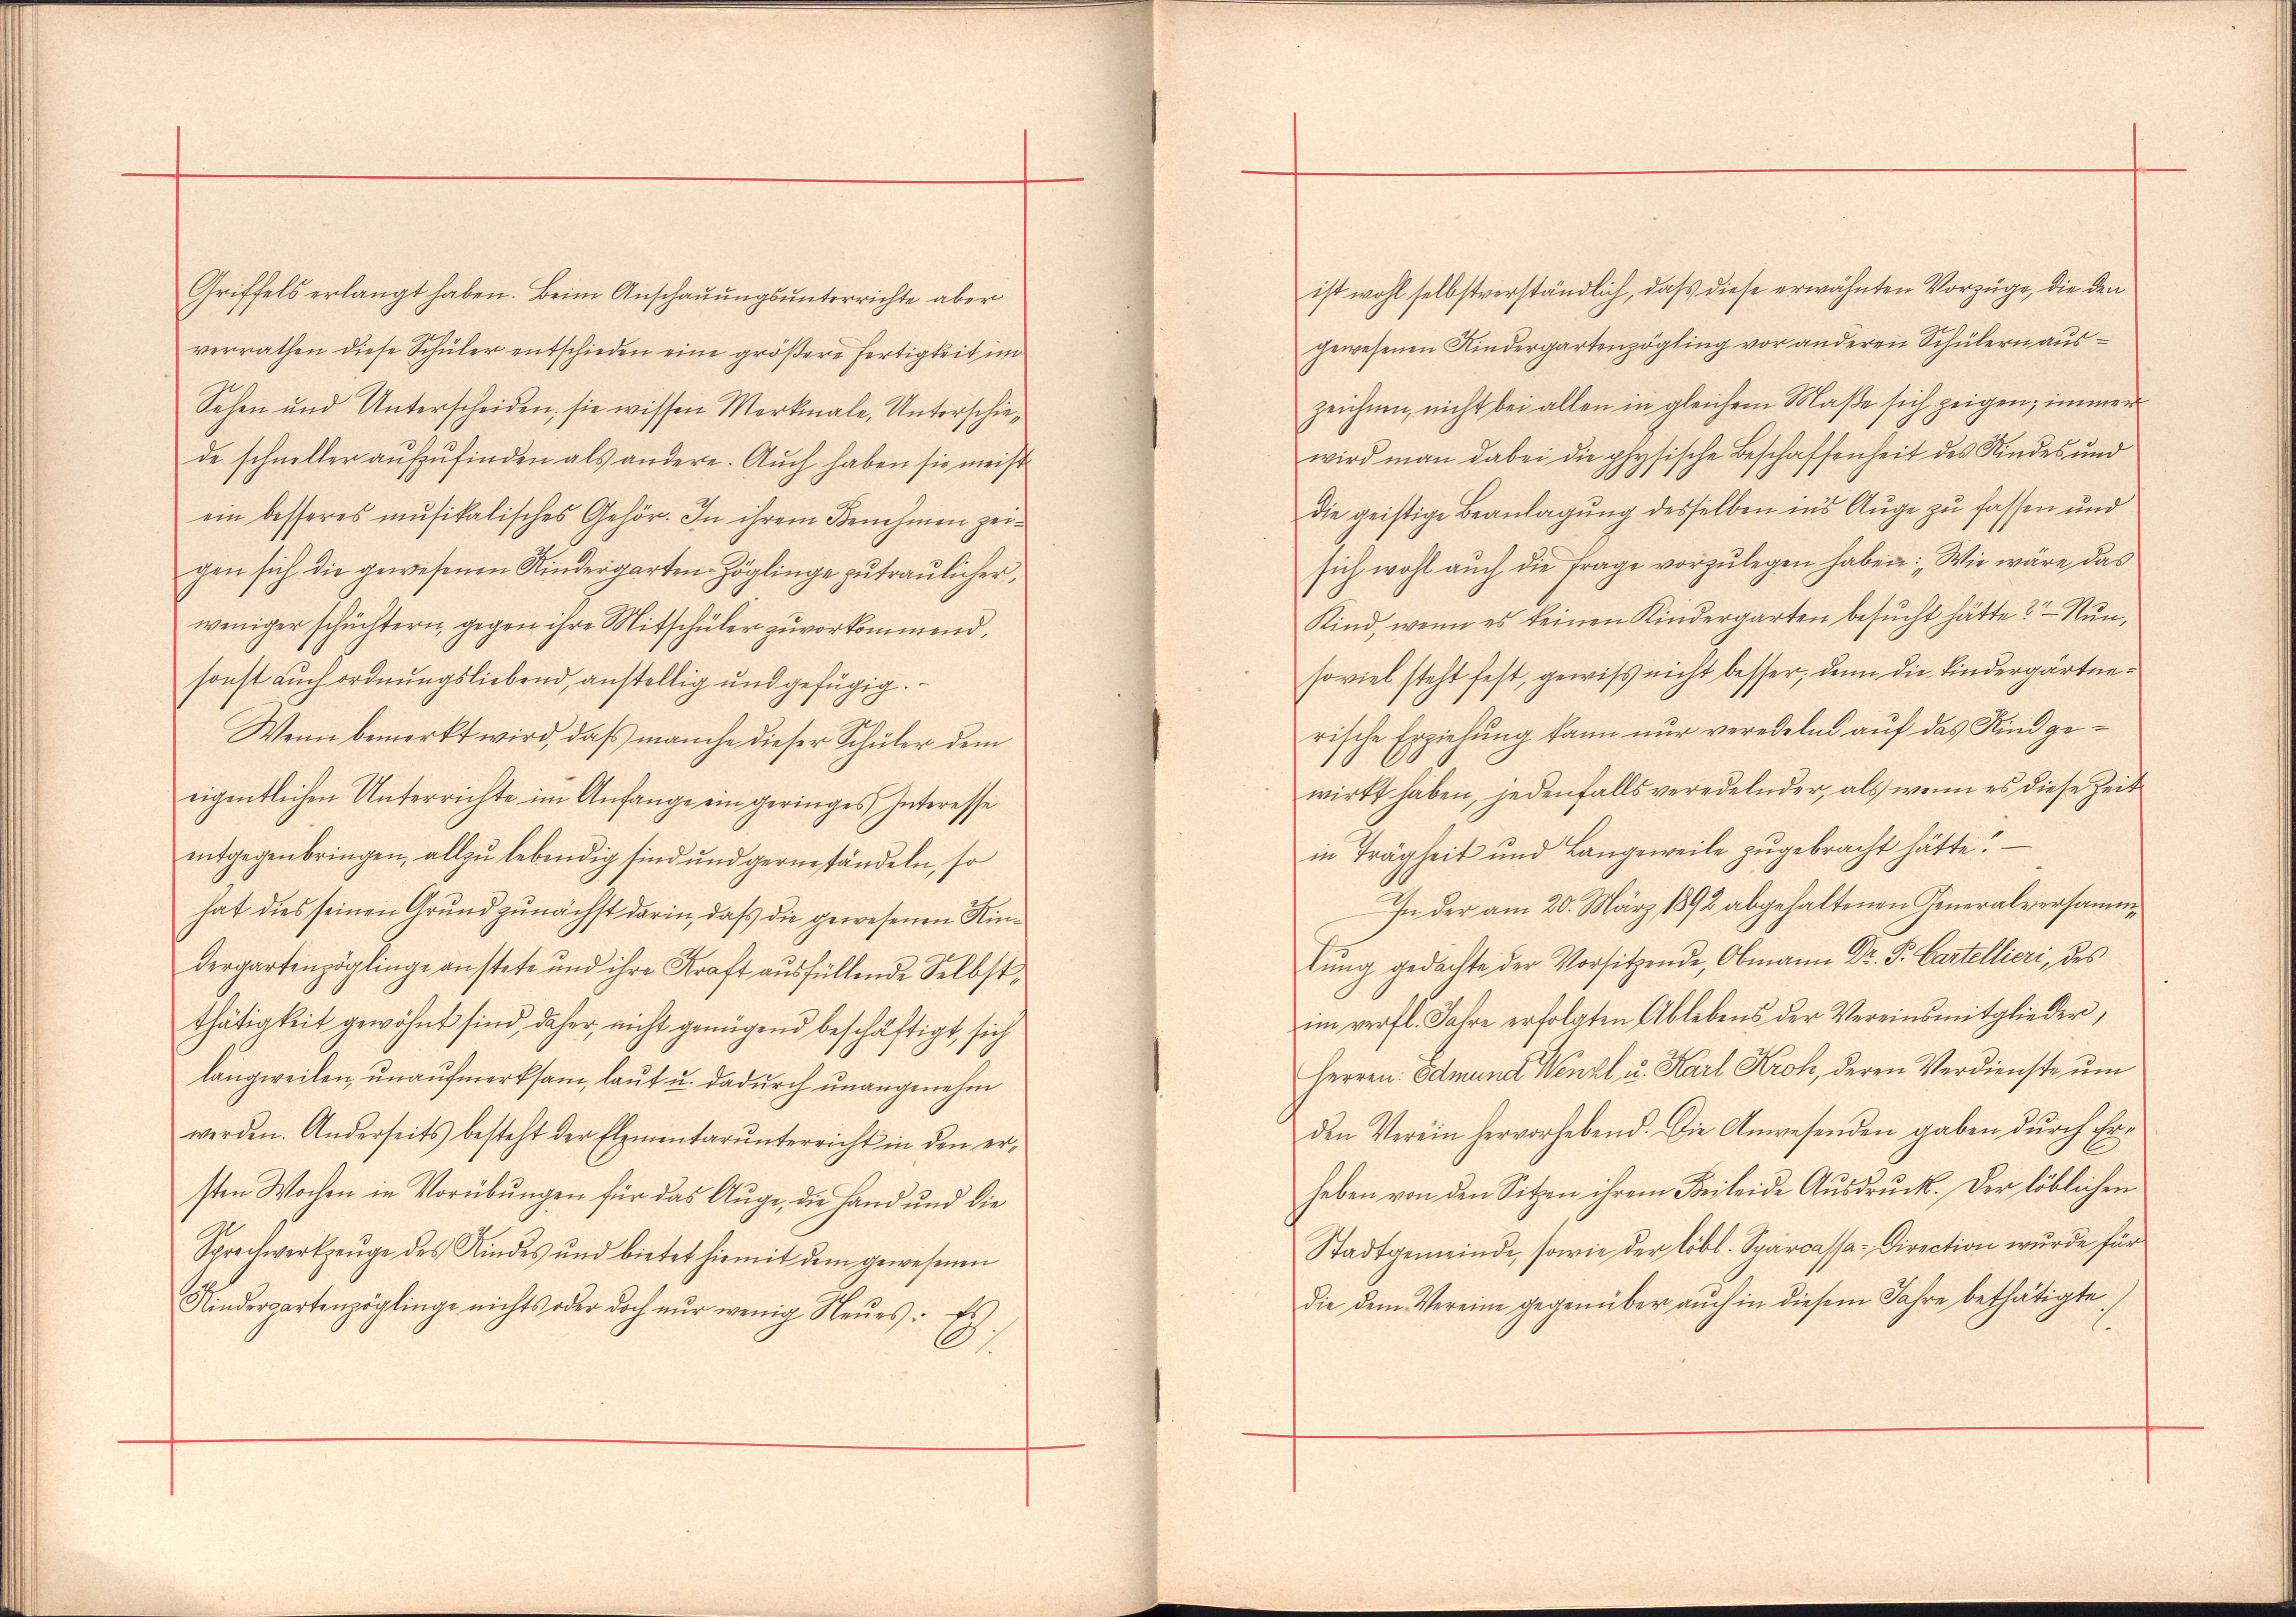 Griffels erlangt haben. Beim Anschauungsunterrichte aber
verrathen diese Schüler entschieden eine größere Fertigkeit im
Sehen und Unterscheiden; sie wissen Merkmale, Unterschie-
de schneller aufzufinden als andere. Auch haben sie meist
ein besseres musikalisches Gehör. In ihrem Benehmen zei-
gen sich die gewesenen Kindergarten-Zöglinge zutraulicher,
weniger schüchtern, gegen ihre Mitschüler zuvorkommend,
sonst auch ordnungsliebend, anstellig und gefügig. -
Wenn bemerkt wird, daß manche dieser Schüler dem
eigentlichen Unterrichte im Anfange ein geringes Interesse
entgegenbringen, allzu lebendig sind und gerne tändeln, so
hat dies seinen Grund zunächst darin, daß die gewesenen Kin-
dergartenzöglinge an stete und ihre Kraft ausfüllende Selbst-
thätigkeit gewöhnt sind, daher, nicht genügend beschäftigt, sich
langweilen, unaufmerksam, laut u. dadurch unangenehm
werden. Anderseits besteht der Elementarunterricht in den er-
sten Wochen in Vorübungen für das Auge, die Hand und die
Sprechwerkzeuge des Kindes und bietet hiemit dem gewesenen
Kindergartenzöglinge nichts oder doch nur wenig Neues. Es
./.
ist wohl selbstverständlich, daß diese erwähnten Vorzüge, die den
gewesenen Kindergartenzögling vor anderen Schülern aus-
zeichnen, nicht bei allen in gleichem Maße sich zeigen; immer
wird man dabei die physische Beschaffenheit des Kindes und
die geistige Beanlagung desselben in's Auge zu fassen und
sich wohl auch die Frage vorzulegen haben: „Wie wäre das
Kind, wenn es keinen Kindergarten besucht hätte?" - Nun,
soviel steht fest, gewiß nicht besser; denn die kindergärtne-
rische Erziehung kann nur veredelnd auf das Kind ge-
wirkt haben, jedenfalls veredelnder, als wenn es diese Zeit
in Trägheit und Langeweile zugebracht hätte." -
In der am 20. März 1892 abgehaltenen Generalversamm-
lung gedachte der Vorsitzende, Obmann Dr. P. Cartellieri, des
im verfl. Jahre erfolgten Ablebens der Vereinsmitglieder,
Herren: Edmund Wenzl, u. Karl Kroh, deren Verdienste um
den Verein hervorhebend. Die Anwesenden gaben durch Er-
heben von den Sitzen ihrem Beileide Ausdruck. Der löblichen
Stadtgemeinde, sowie der löbl. Sparcassa-Direction wurde für
die dem Vereine gegenüber auch in diesem Jahre bethätigte
./.